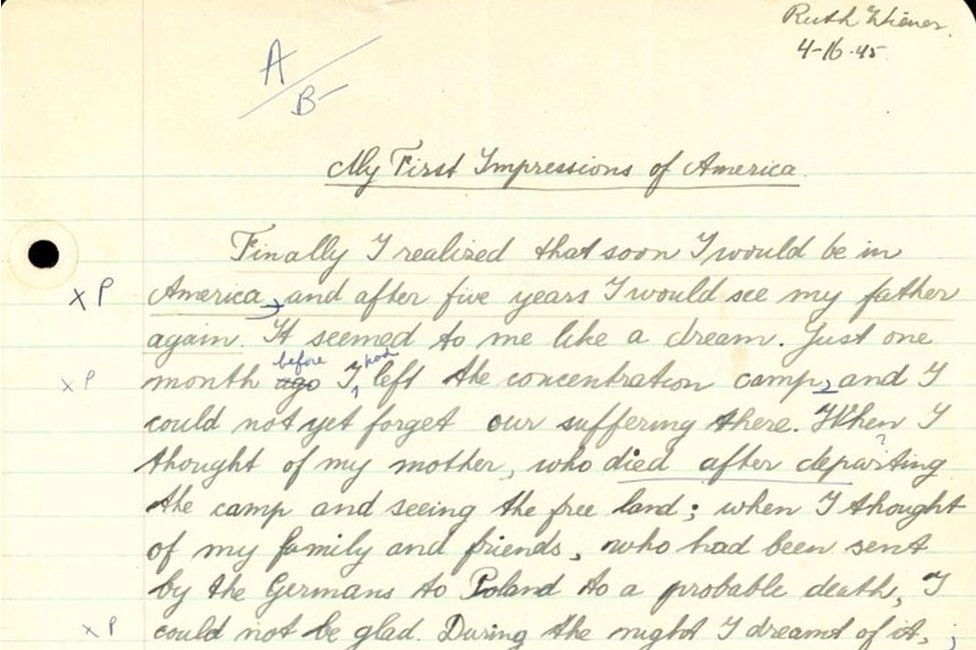 Ruth Wiener.
4-16-45
A/B-
My First Impressions of America.
Finally I realized that soon I would be in
x P America, and after five years I would see my father
again. It seemed to me like a dream. Just one
before had
x P month ago I left the concentration camp, and I
could not yet forget our suffering there. When I
?
thought of my mother, who died after departing
the camp and seeing the free land; when I thought
of my family and friends, who had been sent
by the Germans to Poland to a probable death, I
x P could not be glad. During the night I dreamt of it, ;